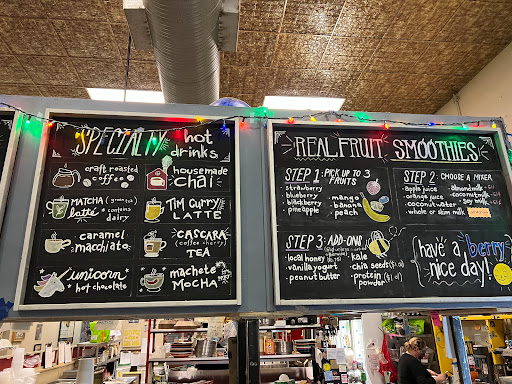 SPECIALTY hot drinks
craft roasted coffee
housemade chai
MATCHA (green tea)
latte contains dairy
TIM CURRY LATTE
caramel macchiato
CASCARA (coffee cherry) TEA
unicorn hot chocolate
machete MOCHA
REAL FRUIT SMOOTHIES
STEP 1: PICK UP TO 3 FRUITS
• strawberry
• blueberry
• blackberry
• pineapple
• mango
• banana
• peach
STEP 2: CHOOSE A MIXER
• apple juice
• orange juice
• coconut water
• whole or skim milk
• almond milk
• coconut milk
• soy milk
STEP 3: ADD-ONS
• local honey
• vanilla yogurt
• peanut butter
• kale
• chia seeds ($1.0)
• protein powder ($1.0)
{have a berry nice day!}